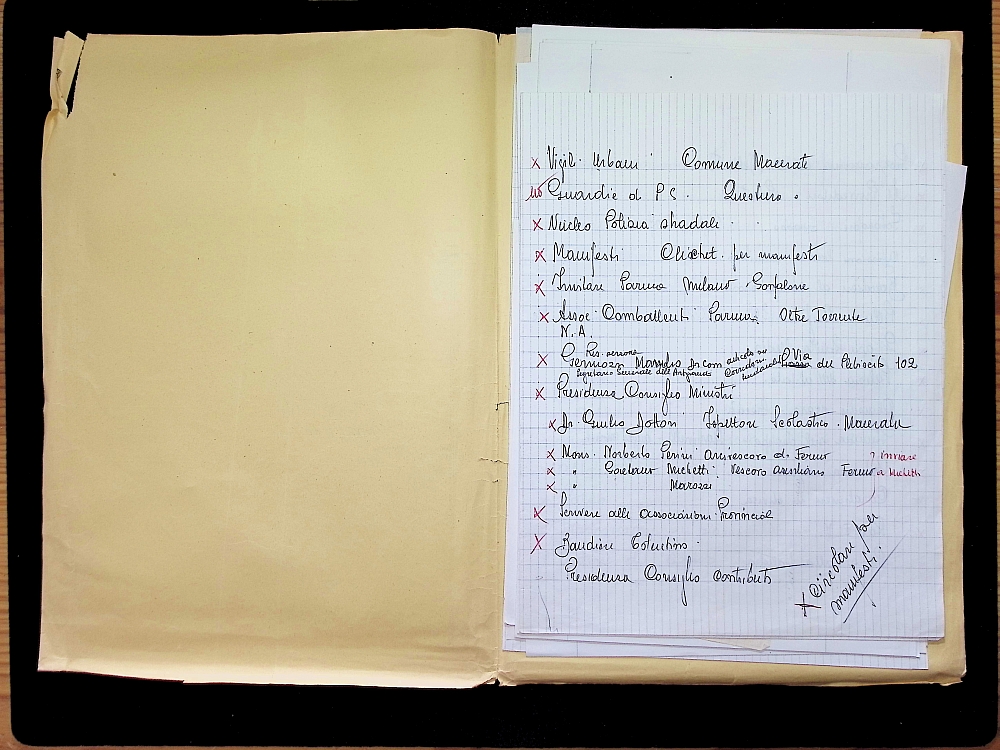 x Vigili Urbani Comune Macerata
no Guardie di P S. Questura.
x Nucleo Polizia stradale
x Manifesti Clichet. per manifesti
x Invitare Parma Milano, Gonfalone
x Assoc. Combattenti Parma Oltre Torrente
N.A.
Res. versione
x Manzilio Dr Com Via del Plebiscito 102
Segretario Generale dell'Artigianato
x Presidenza Consiglio Ministri
x Dr. Giulio Dottori Ispettore Scolastico. Macerata
x Mons. Norberto Perini arcivescovo di Fermo ? inviare
x " Gaetano Michetti Vescovo ausiliare Fermo a Michetti
x " Marozzi
x Scrivere alle associazioni Provinciali
x Bandiera Tolentino.
Presidenza Consiglio Contributi
+ Circolari per manifesti.